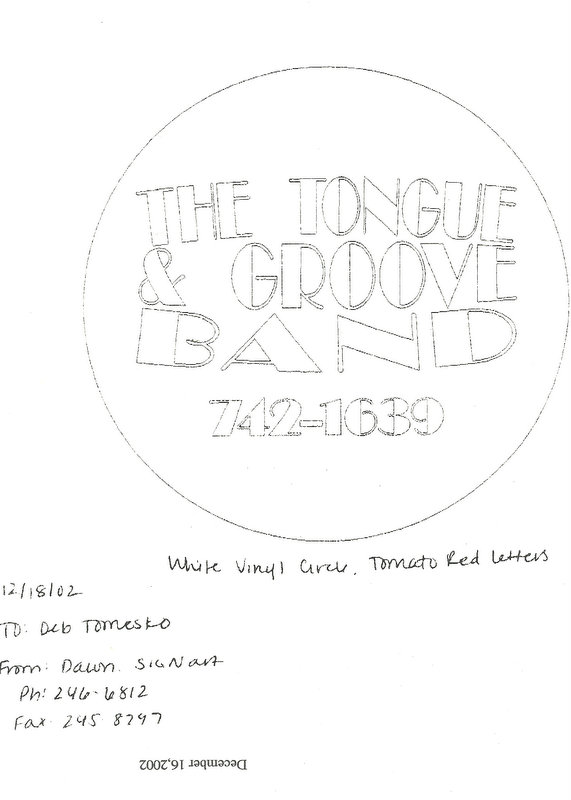 THE TONGUE
& GROOVE
BAND
742-1639
White Vinyl Circle. Tomato Red Letters
12/18/02
TO: Deb Tomesko
From: Dawn. SIGNart
Ph: 246-6812
Fax 245 8797
December 16,2002